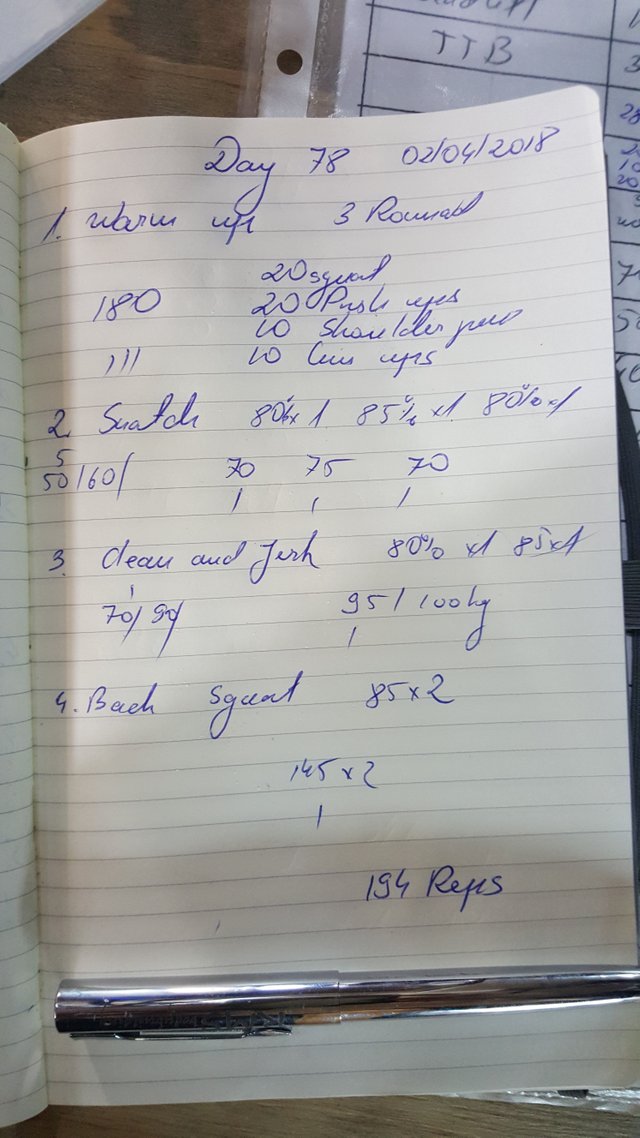 Day 78 02/04/2018
1. Warm ups 3 Round
20 squat
180 20 Push ups
10 Shoulder press
111 10 ups
2. Snatch 80% x1 85% x1 80% x1
5
50/60/ 70 75 70
1 1 1
3. Clean and Jerk 80% x1 85x1
1
70/90/ 95/100kg
1
4. Back Squat 85x2
145x2
1
194 Reps
TTB